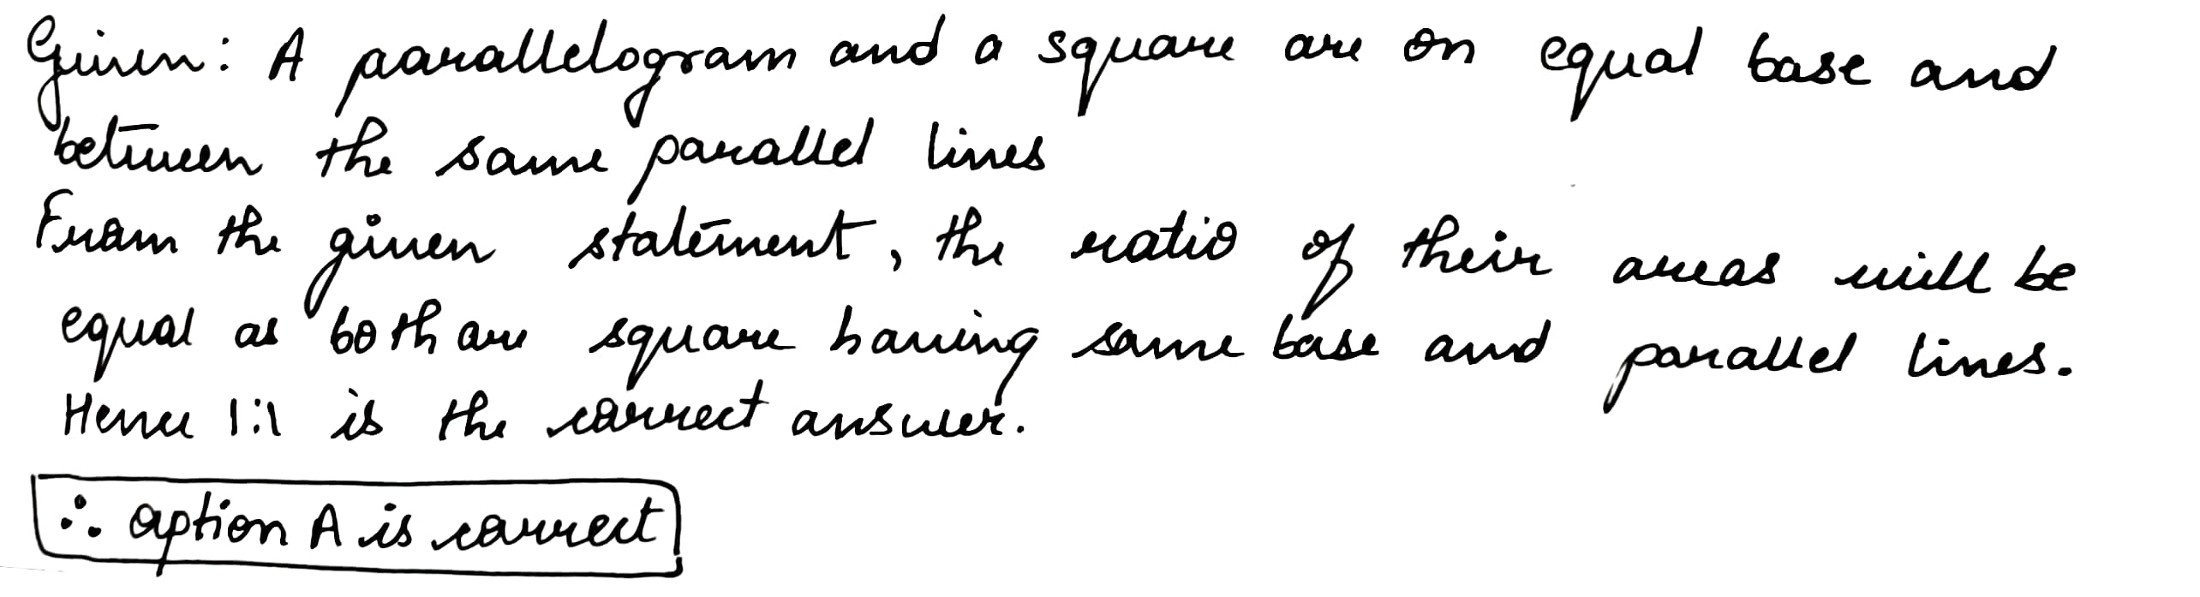 Given: A parallelogram and a square are on equal base and
between the same parallel lines
From the given statement, the ratio of their areas will be
equal as both are square having same base and parallel lines.
Hence 1:1 is the correct answer.
∴ option A is correct